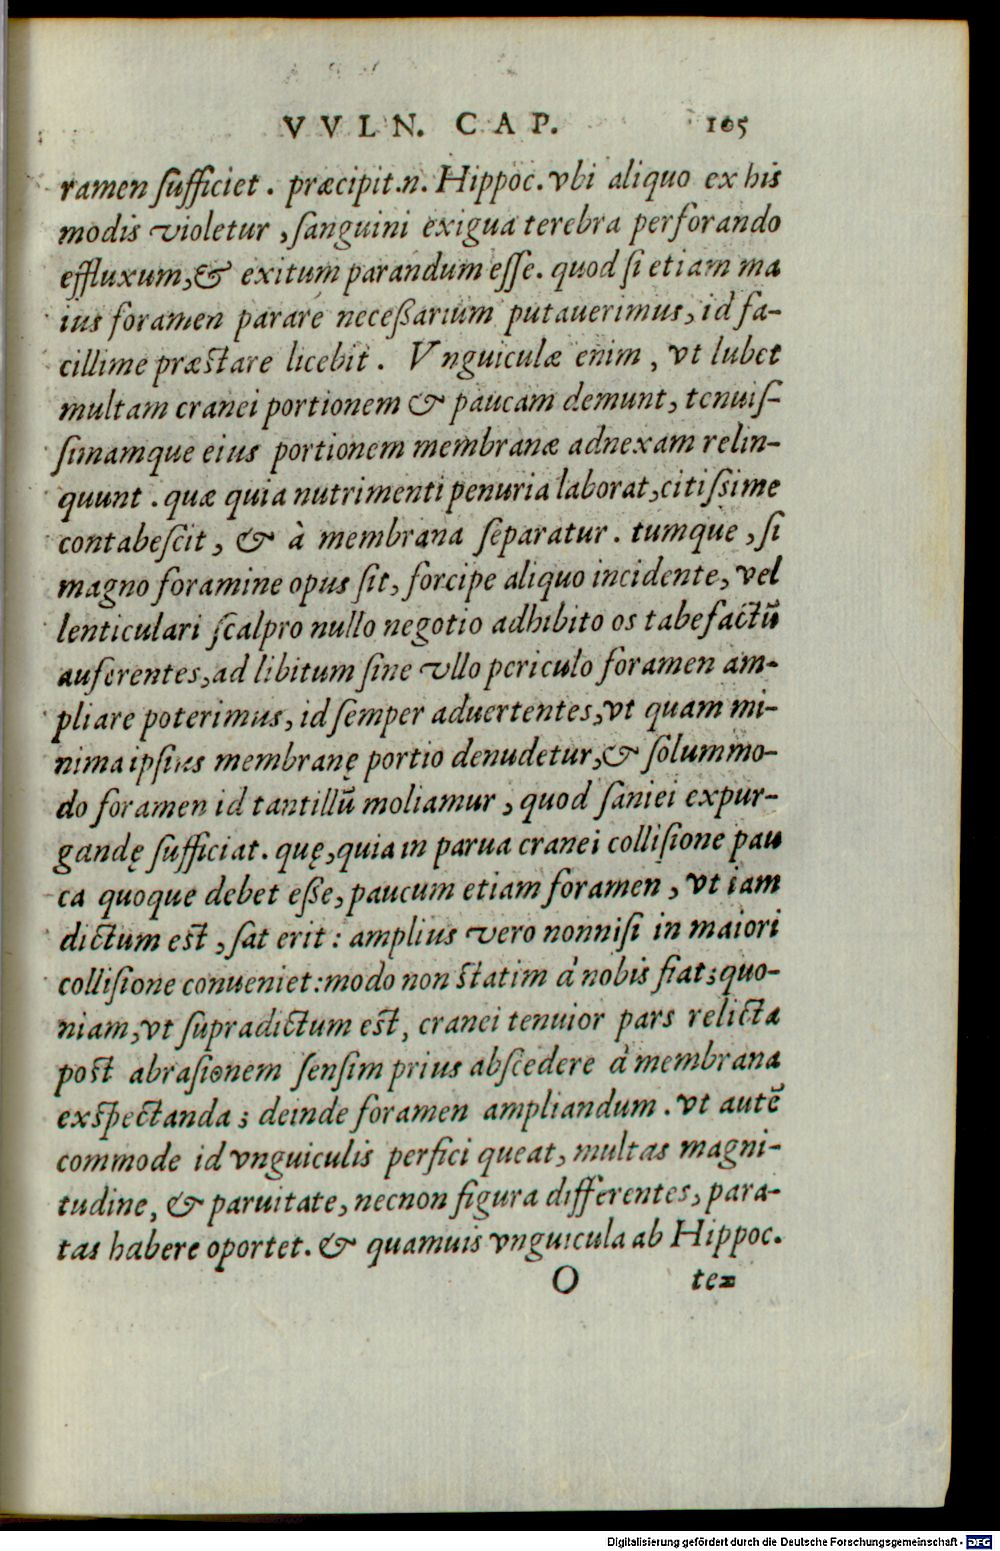 VVLN. CAP. 105
ramen ſufficiet. præcipit.n. Hippoc. vbi aliquo ex his
modis violetur, ſanguini exigua terebra perforando
effluxum, & exitum parandum eſſe. quod ſi etiam ma
ius foramen parare neceßarium putauerimus, id fa-
cillime præſtare licebit. Vnguiculæ enim, vt lubet
multam cranei portionem & paucam demunt, tenuiſ-
ſimamque eius portionem membranæ adnexam relin-
quunt. quæ quia nutrimenti penuria laborat, citiſsime
contabeſcit, & à membrana ſeparatur. tumque, ſi
magno foramine opus ſit, forcipe aliquo incidente, vel
lenticulari ſcalpro nullo negotio adhibito os tabefactū
auferentes, ad libitum ſine vllo periculo foramen am-
pliare poterimus, id ſemper aduertentes, vt quam mi-
nima ipſius membranę portio denudetur, & ſolummo-
do foramen id tantillū moliamur, quod ſaniei expur-
gandę ſufficiat. quę, quia in parua cranei colliſione pau
ca quoque debet eße, paucum etiam foramen, vt iam
dictum eſt, ſat erit: amplius vero nonniſi in maiori
colliſione conueniet: modo non ſtatim à nobis fiat; quo-
niam, vt ſupradictum eſt, cranei tenuior pars relicta
poſt abraſionem ſenſim prius abſcedere à membrana
exſpectanda; deinde foramen ampliandum. vt autē
commode id vnguiculis perfici queat, multas magni-
tudine, & paruitate, necnon figura differentes, para-
tas habere oportet. & quamuis vnguicula ab Hippoc.
O te=
Digitalisierung gefördert durch die Deutsche Forschungsgemeinschaft - DFG